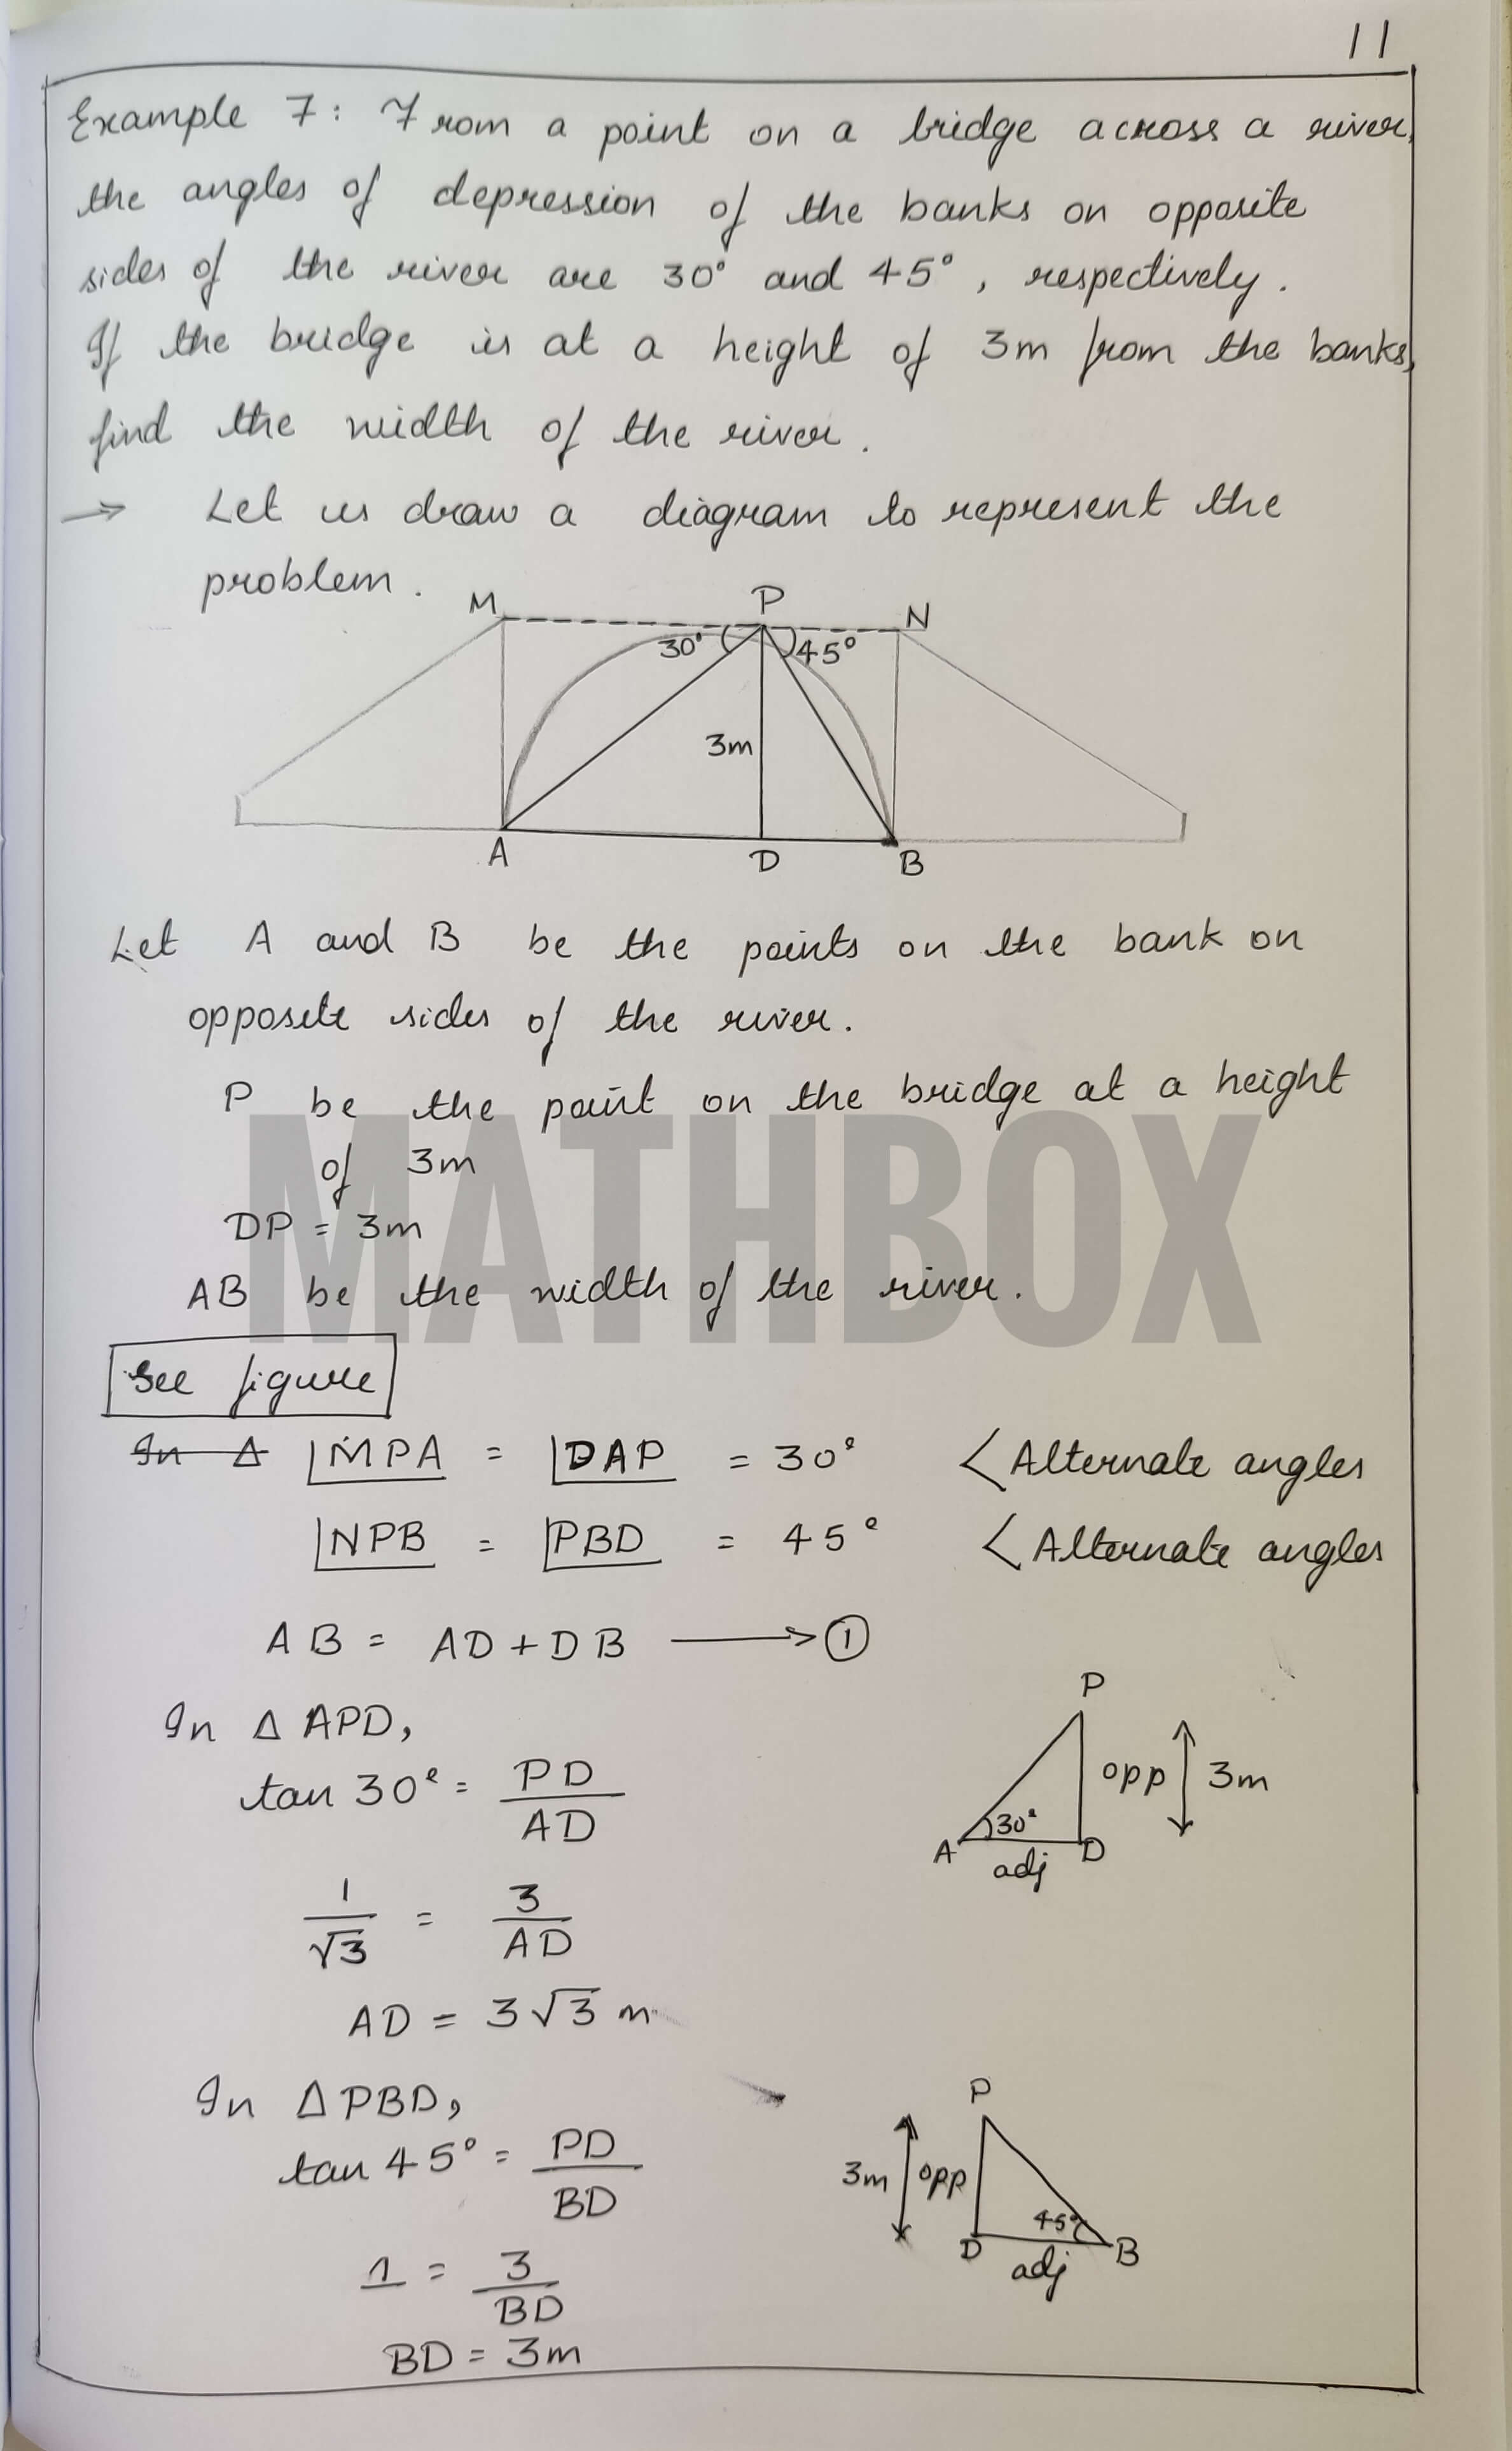 11
Example 7: From a point on a bridge across a river,
the angles of depression of the banks on opposite
sides of the river are 30° and 45°, respectively.
If the bridge is at a height of 3m from the banks,
find the width of the river.
→ Let us draw a diagram to represent the
problem.
M P N
30° 45°
3m
A D B
Let A and B be the points on the bank on
opposite sides of the river.
P be the point on the bridge at a height
of 3m
DP = 3m
AB be the width of the river.
MATHBOX
See figure
In Δ |MPA = |DAP = 30° < Alternate angles
|NPB = |PBD = 45° < Alternate angles
AB = AD + DB → ①
In Δ APD,
tan 30° = PD
AD
1 = 3
√3 AD
AD = 3√3 m
P
opp 3m
30°
A adj D
In Δ PBD,
tan 45° = PD
BD
1 = 3
BD
BD = 3m
P
3m opp
45°
D adj B